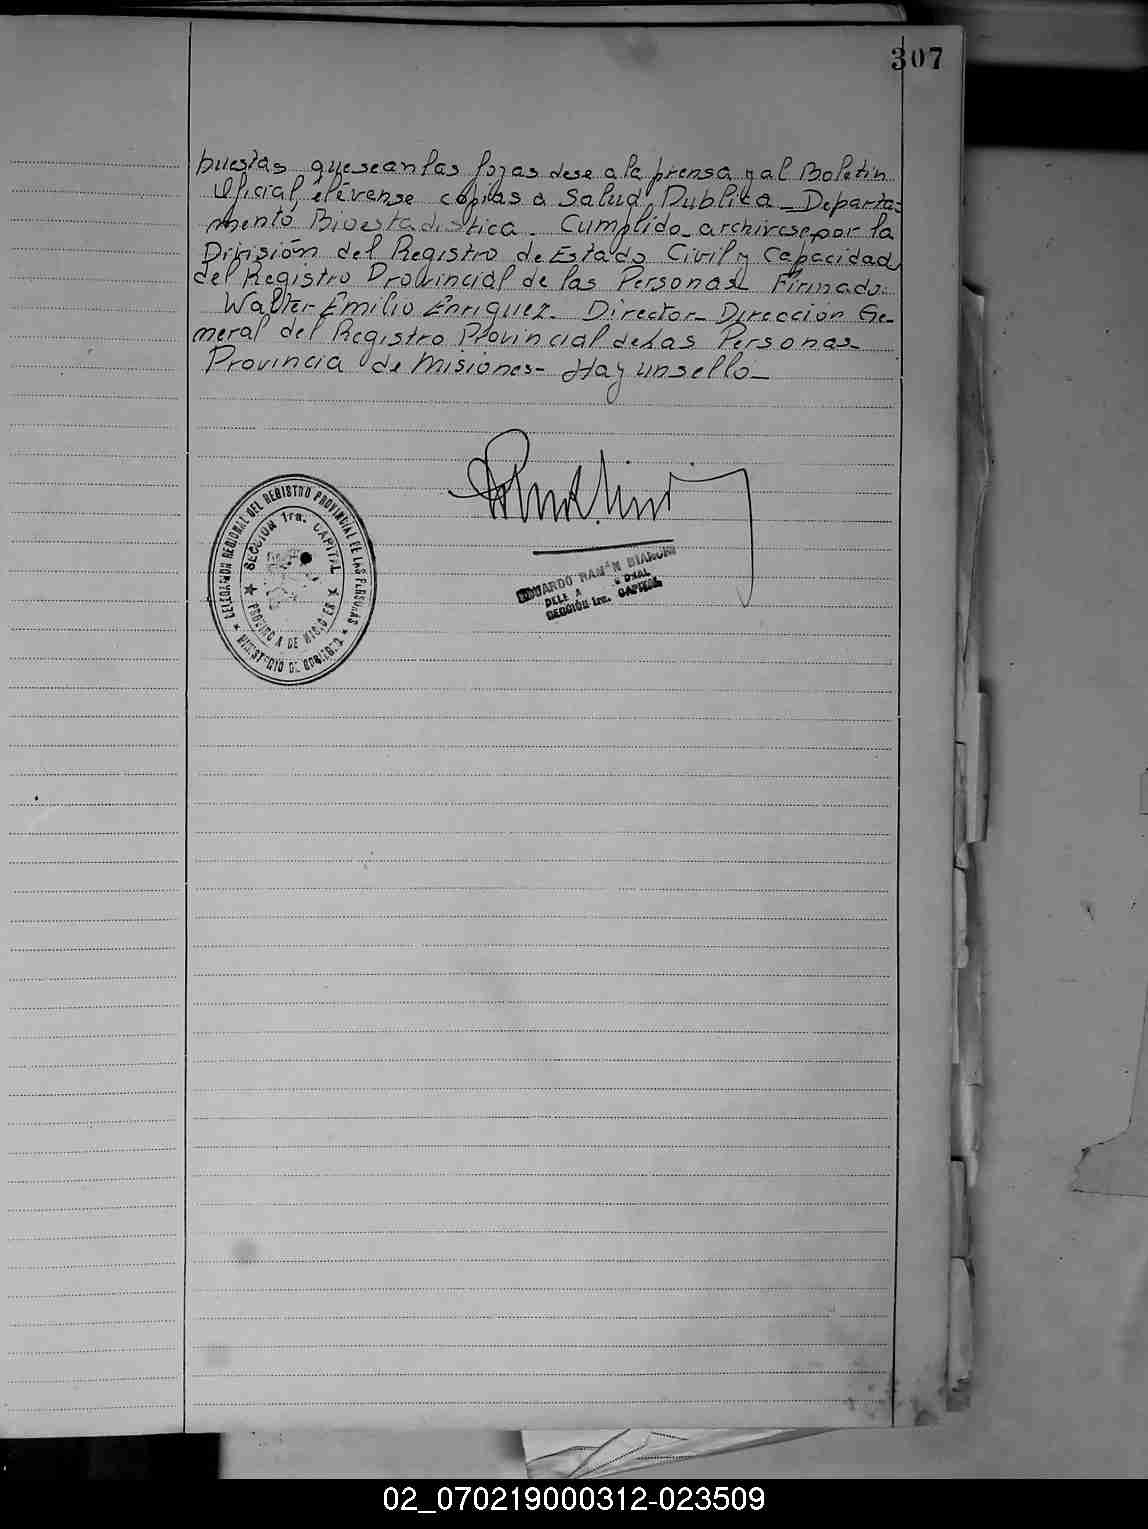 307
puestas que sean las fojas dese a la prensa y al Boletin
Oficial, elévense copias a Salud Publica - Departa-
mento Bioestadistica - Cumplido - archivese por la
División del Registro de Estado Civil y Capacidad
del Registro Provincial de las Personas - Firmado:
Walter Emilio Enriquez - Director - Dirección Ge-
neral del Registro Provincial de Las Personas -
Provincia de Misiones - Hay un sello -
DELEGACION REGIONAL DEL REGISTRO PROVINCIAL DE LAS PERSONAS
SECCION 1ra. CAPITAL
PROVINCIA DE MISIONES
MINISTERIO DE GOBIERNO
EDUARDO RAMÓN BIANCHI
SECCIÓN 1ra. CAPITAL
02_070219000312-023509